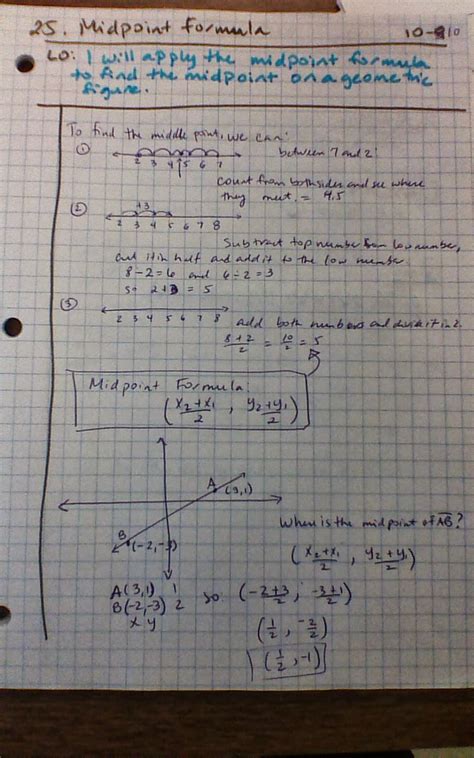 25. Midpoint Formula 10-9/10
LO: I will apply the midpoint formula
to find the midpoint on a geometric
figure.
To find the middle point, we can:
① 2 3 4 5 6 7 between 7 and 2:
count from both sides and see where
they meet. = 4.5
② +3
2 3 4 5 6 7 8
Subtract top number from low number,
cut it in half and add it to the low number
8-2=6 and 6÷2=3
so 2+3 = 5
③ 2 3 4 5 6 7 8
add both numbers and divide it in 2.
8+2/2 = 10/2 = 5
Midpoint Formula:
(x₂+x₁/2 , y₂+y₁/2)
A (3,1)
When is the midpoint of AB?
B (-2,-3)
(x₂+x₁/2 , y₂+y₁/2)
A(3,1) 1
B(-2,-3) 2
x y
so (-2+3/2 , -3+1/2)
(1/2 , -2/2)
(1/2 , -1)